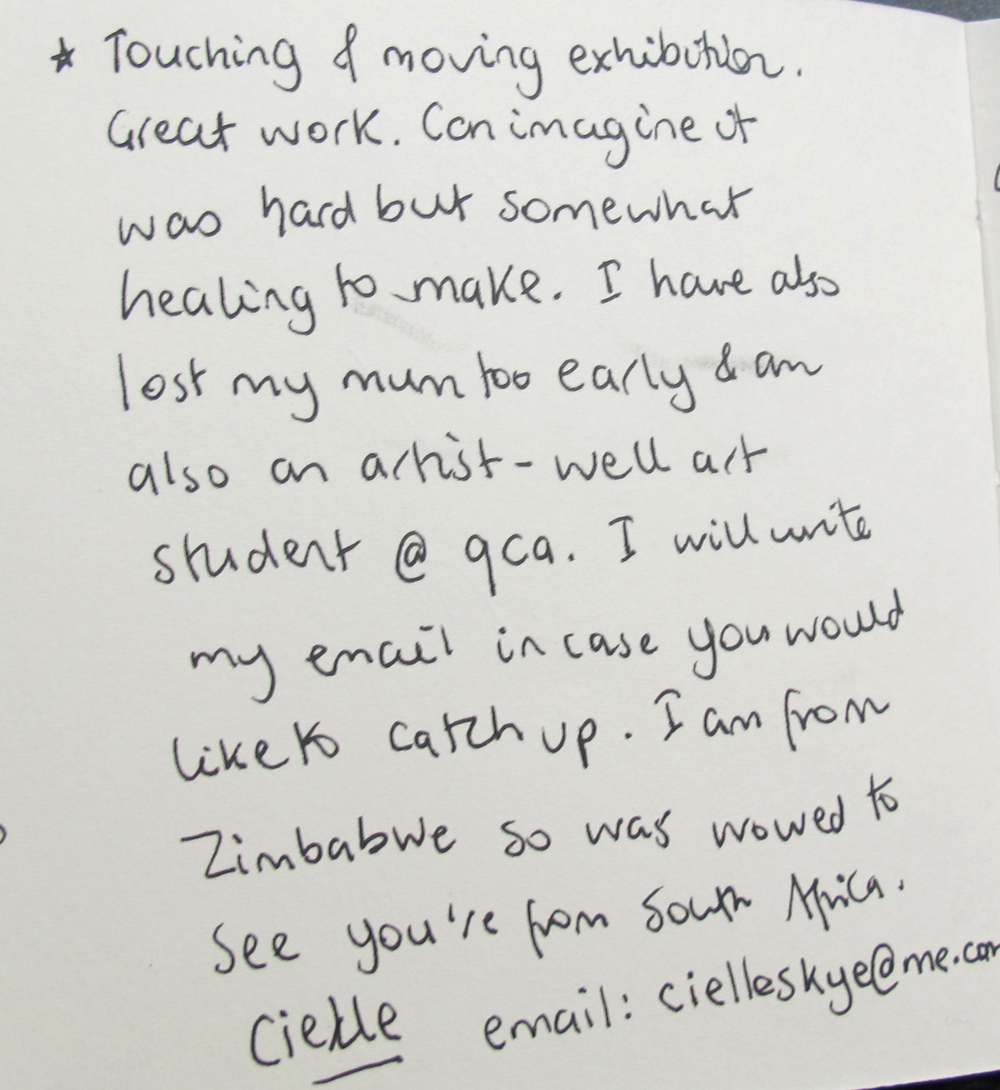 * Touching & moving exhibition.
Great work. Can imagine it
was hard but somewhat
healing to make. I have also
lost my mum too early & am
also an artist - well art
student @ qca. I will write
my email in case you would
like to catch up. I am from
Zimbabwe so was wowed to
see you're from South Africa.
Cielle email: cielleskye@me.com